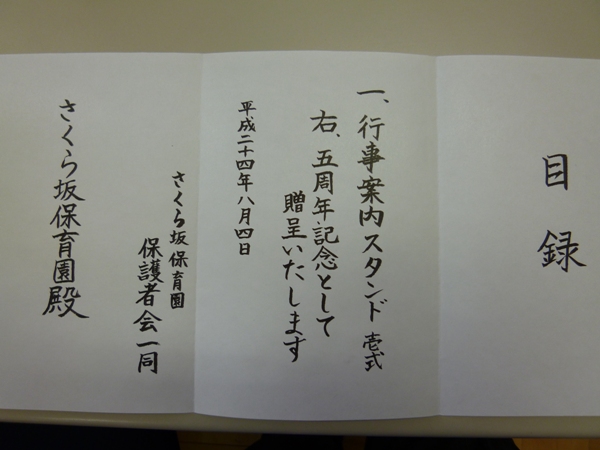 目録
一、行事案内スタンド 壱式
右、五周年記念として
贈呈いたします
平成二十四年八月四日
さくら坂保育園
保護者会一同
さくら坂保育園殿